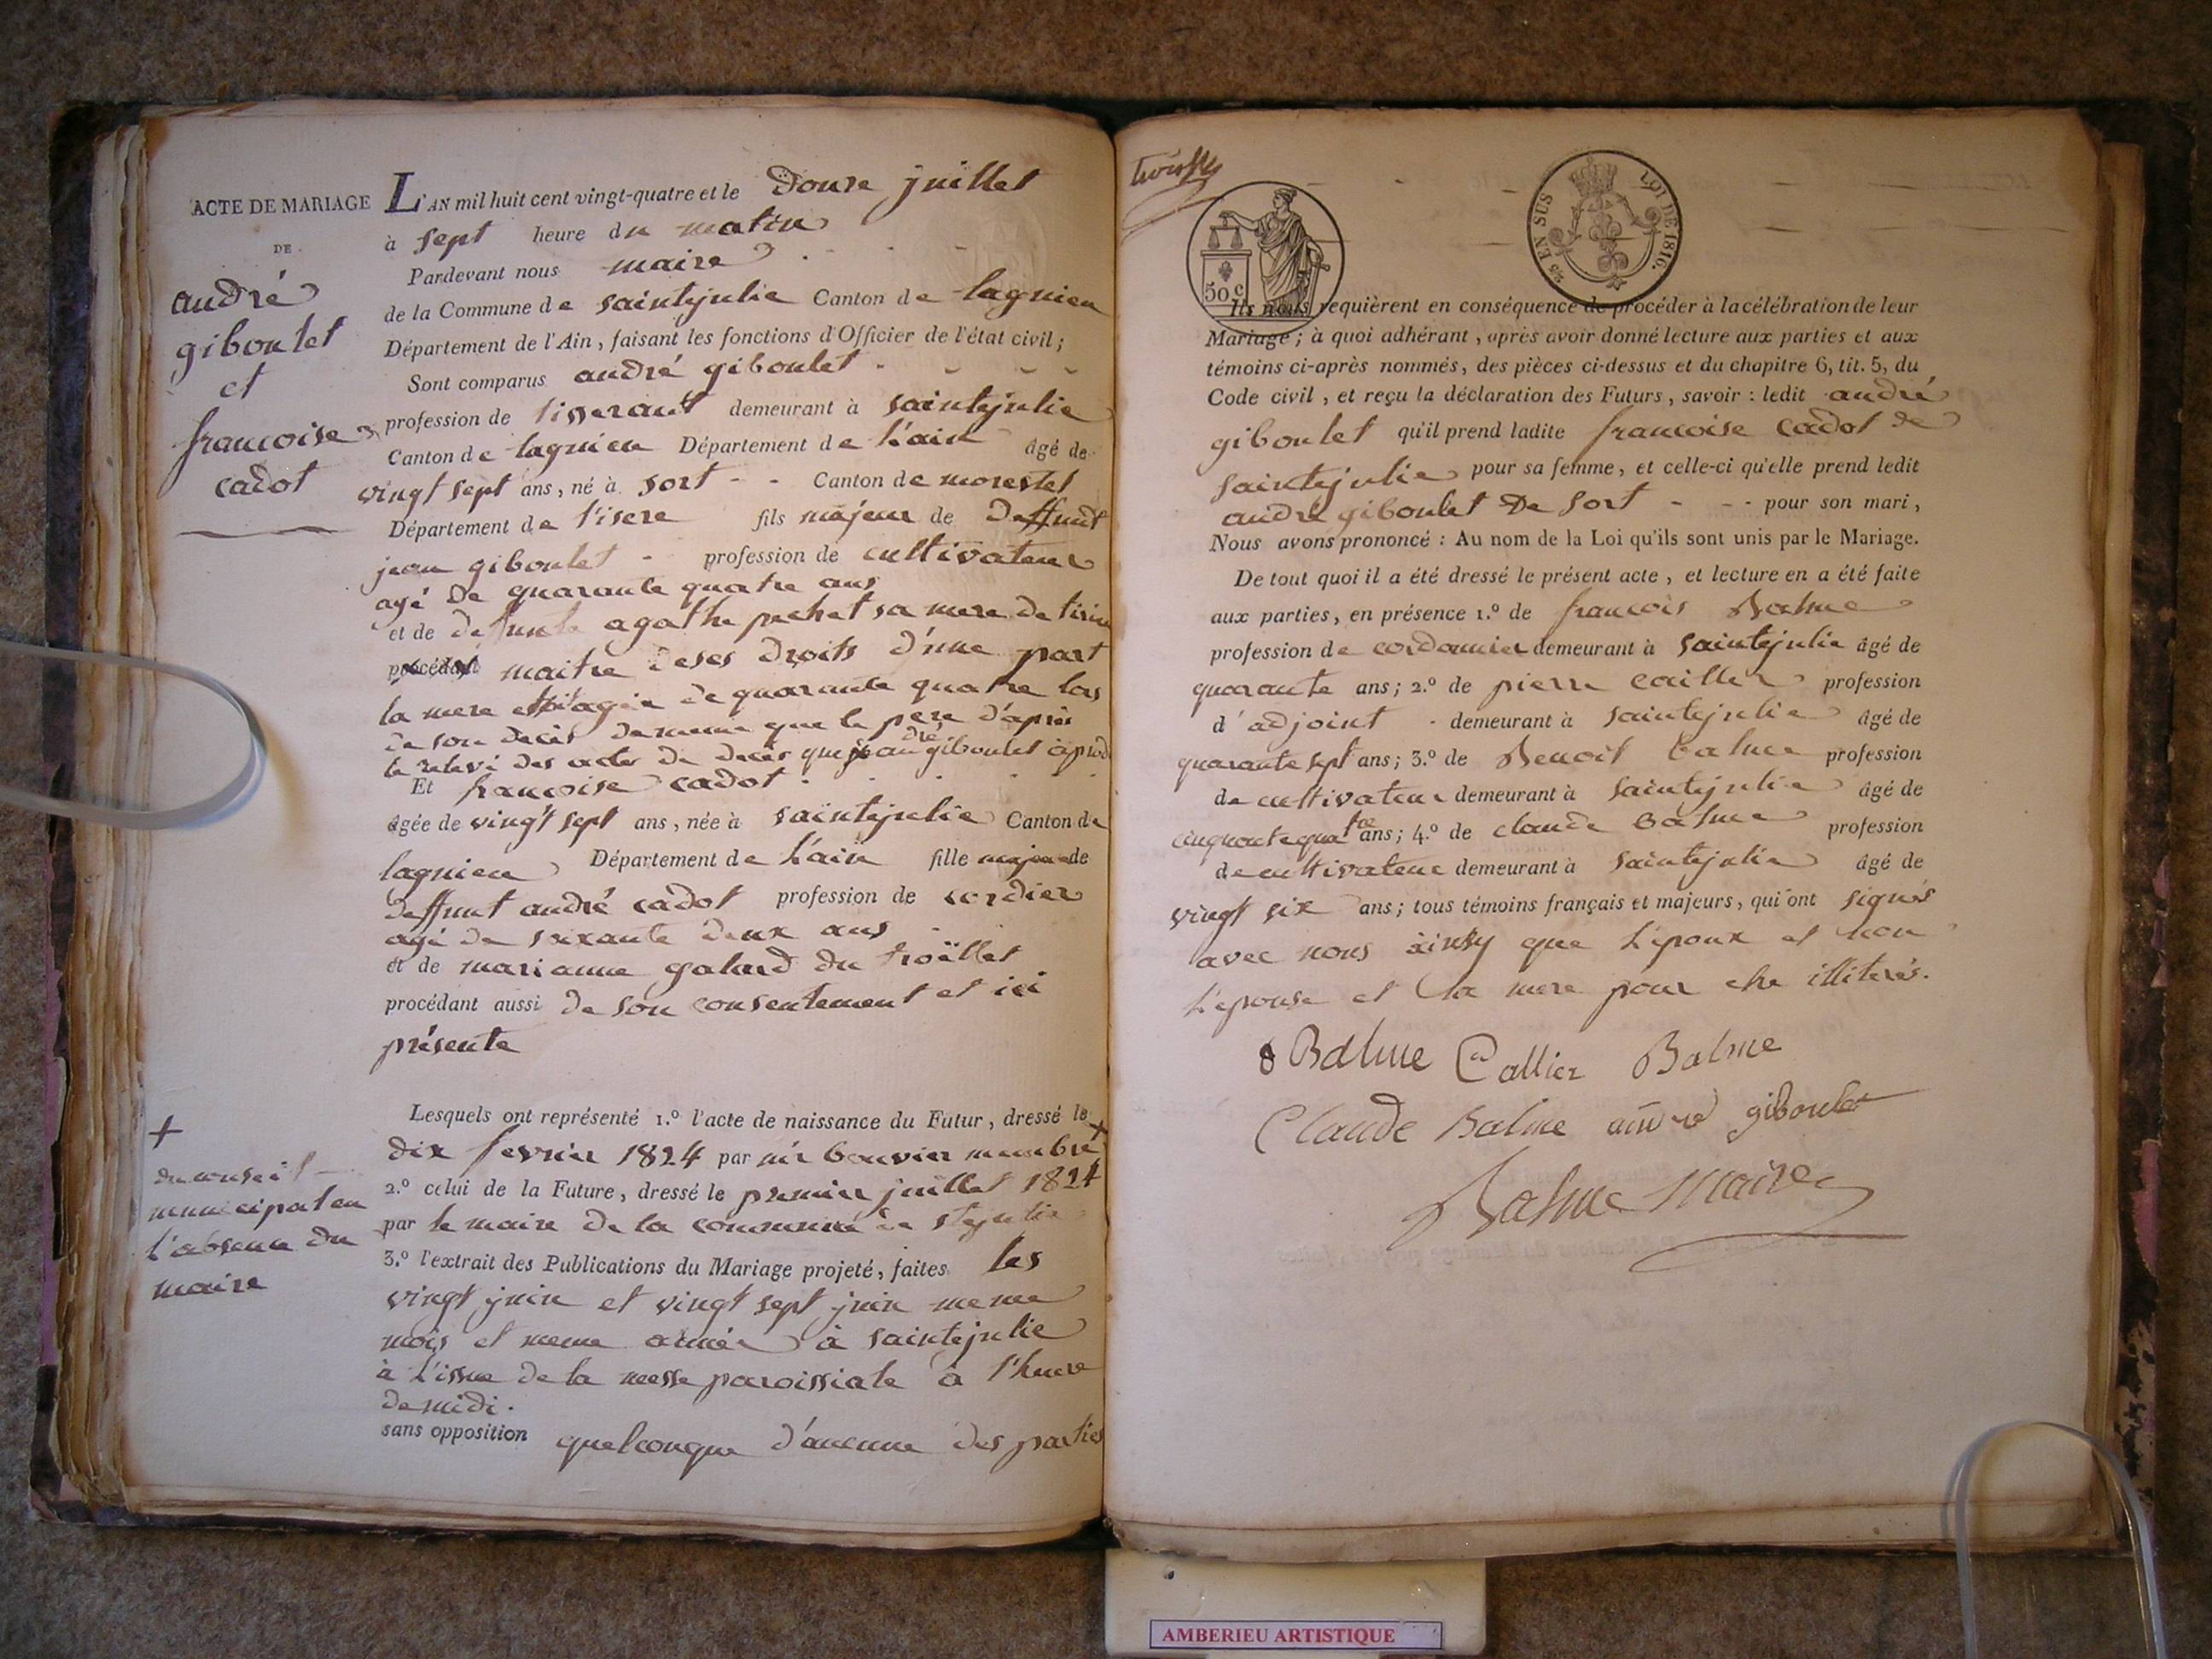 ACTE DE MARIAGE
DE
andré
giboulet
et
francoise
cadot
L'AN mil huit cent vingt-quatre et le douze juillet
à sept heure du matin
Pardevant nous maire
de la Commune de saintejulie Canton de lagnieu
Département de l'Ain, faisant les fonctions d'Officier de l'état civil;
Sont comparus andré giboulet
profession de tisserant demeurant à saintejulie
Canton de lagnieu Département de l'ain âgé de
vingt sept ans, né à sort Canton de morestel
Département de l'isere fils majeur de deffunt
jean giboulet profession de cultivateur
agé de quarante quatre ans
et de defunte agathe pechet sa mere de
procédant maitre de ses droits d'une part
la mere agée de quarante quatre
de son deces de meme que le pere d'après
le relevé des actes de deces que andré giboulet à
Et francoise cadot
âgée de vingt sept ans, née à saintejulie Canton de
lagnieu Département de l'ain fille majeure de
deffunt andré cadot profession de cordier
agé de soixante deux ans
et de marianne galand du
procédant aussi de son consentement et ici
présente
Lesquels ont représenté 1.º l'acte de naissance du Futur, dressé le
dix fevrier 1824 par mr bouvier membre +
+
du conseil
municipal en
l'absence du
maire
2.º celui de la Future, dressé le premier juillet 1824
par le maire de la commune de stejulie
3.º l'extrait des Publications du Mariage projeté, faites les
vingt juin et vingt sept juin meme
mois et meme année à saintejulie
à l'issue de la messe paroissiale à l'heure
de midi.
sans opposition quelconque d'aucune des parties
50 C
25 EN SUS LOI DE 1816.
Ils nous requièrent en conséquence de procéder à la célébration de leur
Mariage; à quoi adhérant, après avoir donné lecture aux parties et aux
témoins ci-après nommés, des pièces ci-dessus et du chapitre 6, tit. 5, du
Code civil, et reçu la déclaration des Futurs, savoir: ledit andré
giboulet qu'il prend ladite francoise cadot de
saintejulie pour sa femme, et celle-ci qu'elle prend ledit
andré giboulet de sort pour son mari,
Nous avons prononcé: Au nom de la Loi qu'ils sont unis par le Mariage.
De tout quoi il a été dressé le présent acte, et lecture en a été faite
aux parties, en présence 1.º de francois Balme
profession de cordonnier demeurant à saintejulie âgé de
quarante ans; 2.º de pierre caillier profession
d'adjoint demeurant à saintejulie âgé de
quarante sept ans; 3.º de Benoit balme profession
de cultivateur demeurant à saintejulie âgé de
cinquante quatre ans; 4.º de claude balme profession
de cultivateur demeurant à saintejulie âgé de
vingt six ans; tous témoins français et majeurs, qui ont signés
avec nous ainsy que l'epoux et non
l'epouse et la mere pour etre illiterés.
Balme Callier Balme
Claude Balme andré giboulet
Balme Maire
AMBERIEU ARTISTIQUE